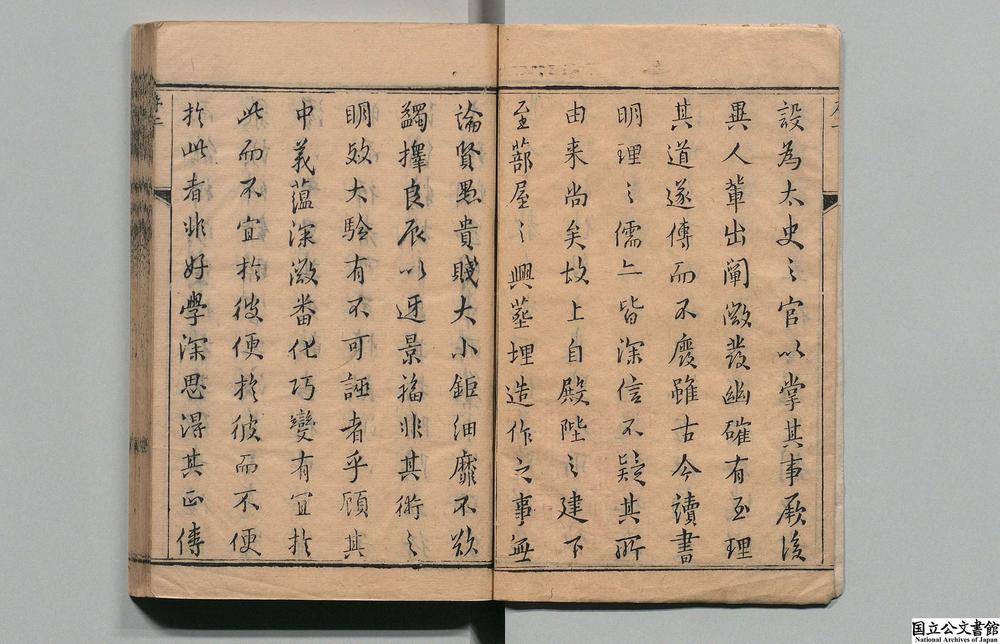 設為太史之官以掌其事厥後
異人輩出闡微發幽確有至理
其道遂傳而不廢雖古今讀書
明理之儒亦皆深信不疑其所
由来尚矣故上自殿陛之建下
至蔀屋之興塟埋造作之事無
論賢愚貴賤大小鉅細靡不欲
蠲擇良辰以迓景福非其術之
明效大騐有不可誣者乎顧其
中義蘊深微番化巧變有宜扵
此而不宜扵彼便扵彼而不便
扵此者非好學深思得其正傳
序二
国立公文書館
National Archives of Japan